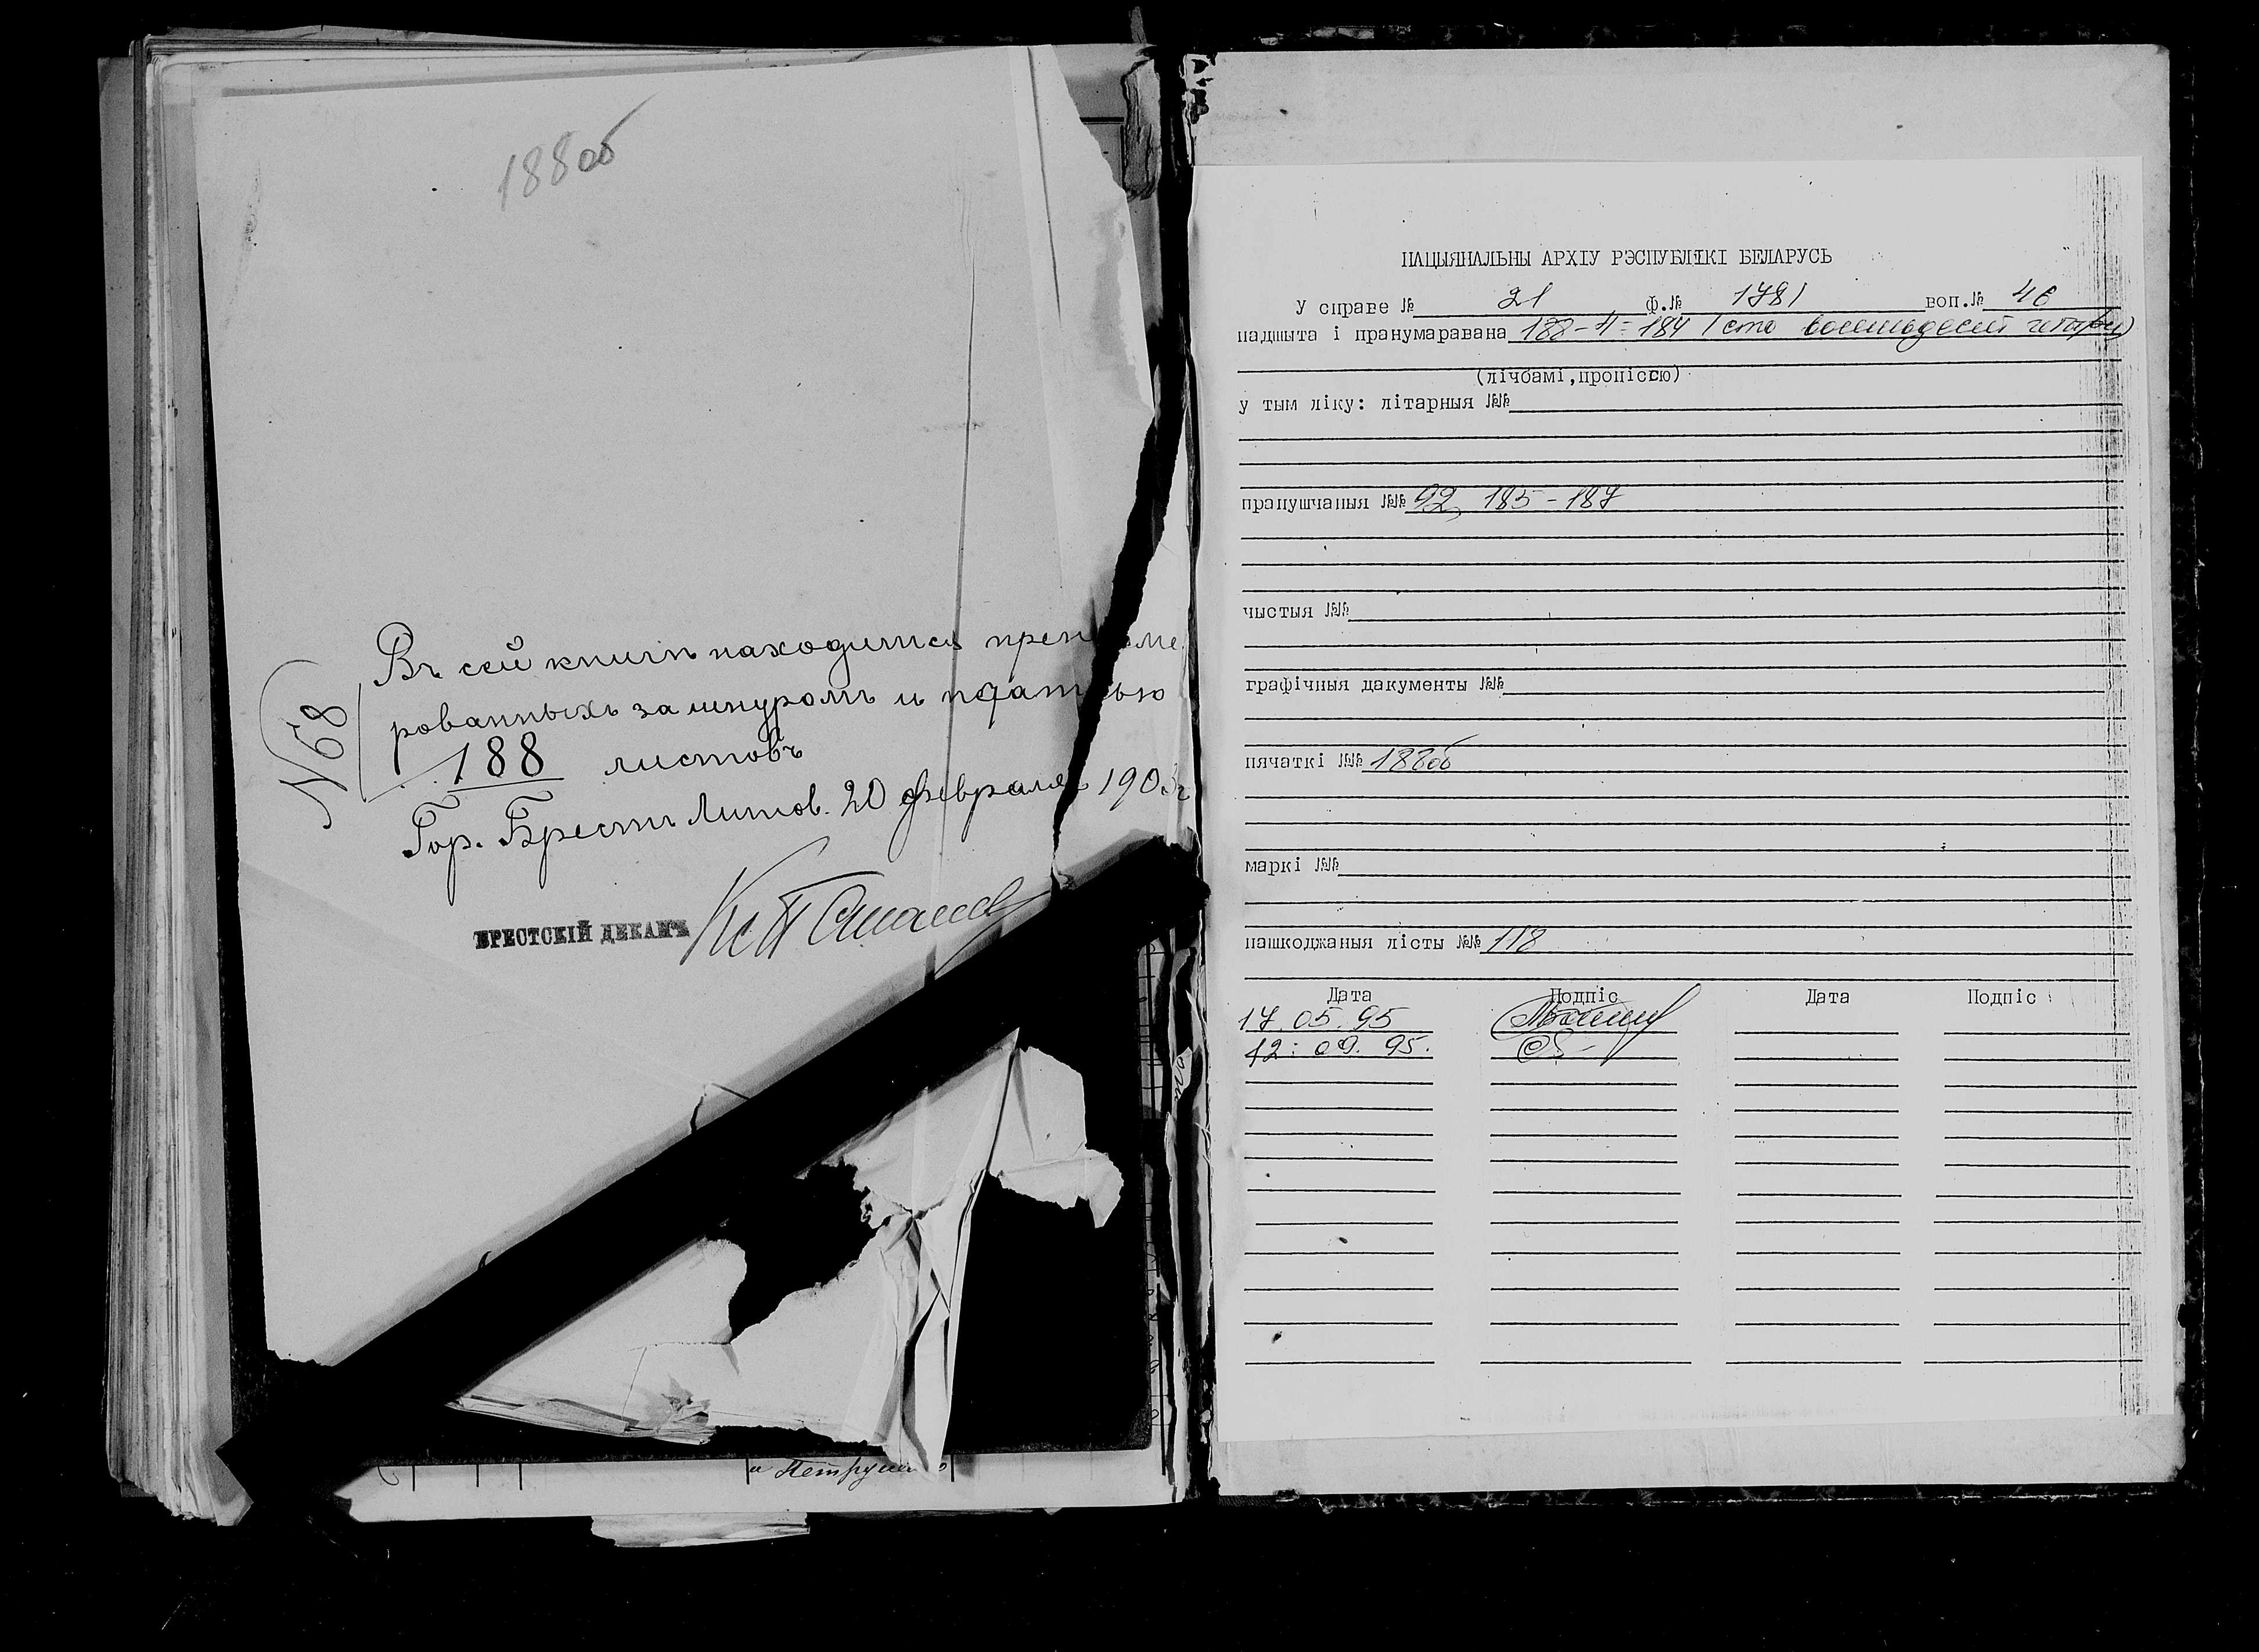 188об
Въ сей книгѣ находится прен ме
рованныхъ за шнуромъ и пҷатью
188 листовъ
N68
Гор. Брестъ Литов. 20 февраля 190 г
БРЕСТСКІЙ ДЕКАНЪ Кс
и
НАЦЫЯНАЛЬНЫ АРХІУ РЭСПУБЛІКІ БЕЛАРУСЬ
У справе № 21 Ф.№ 1781 воп.№ 46
падшыта і пранумаравана 188-4=184 (сто восемьдесят четыре)
(лічбамі,пропіссю)
у тым ліку: літарныя №№
прапушчаныя №№ 92, 185-187
чыстыя №№
графічныя дакументы №№
пячаткі №№ 188об
маркі №№
пашкоджаныя лісты №№ 118
Дата Подпіс Дата Подпіс
17.05.95
12.09.95.